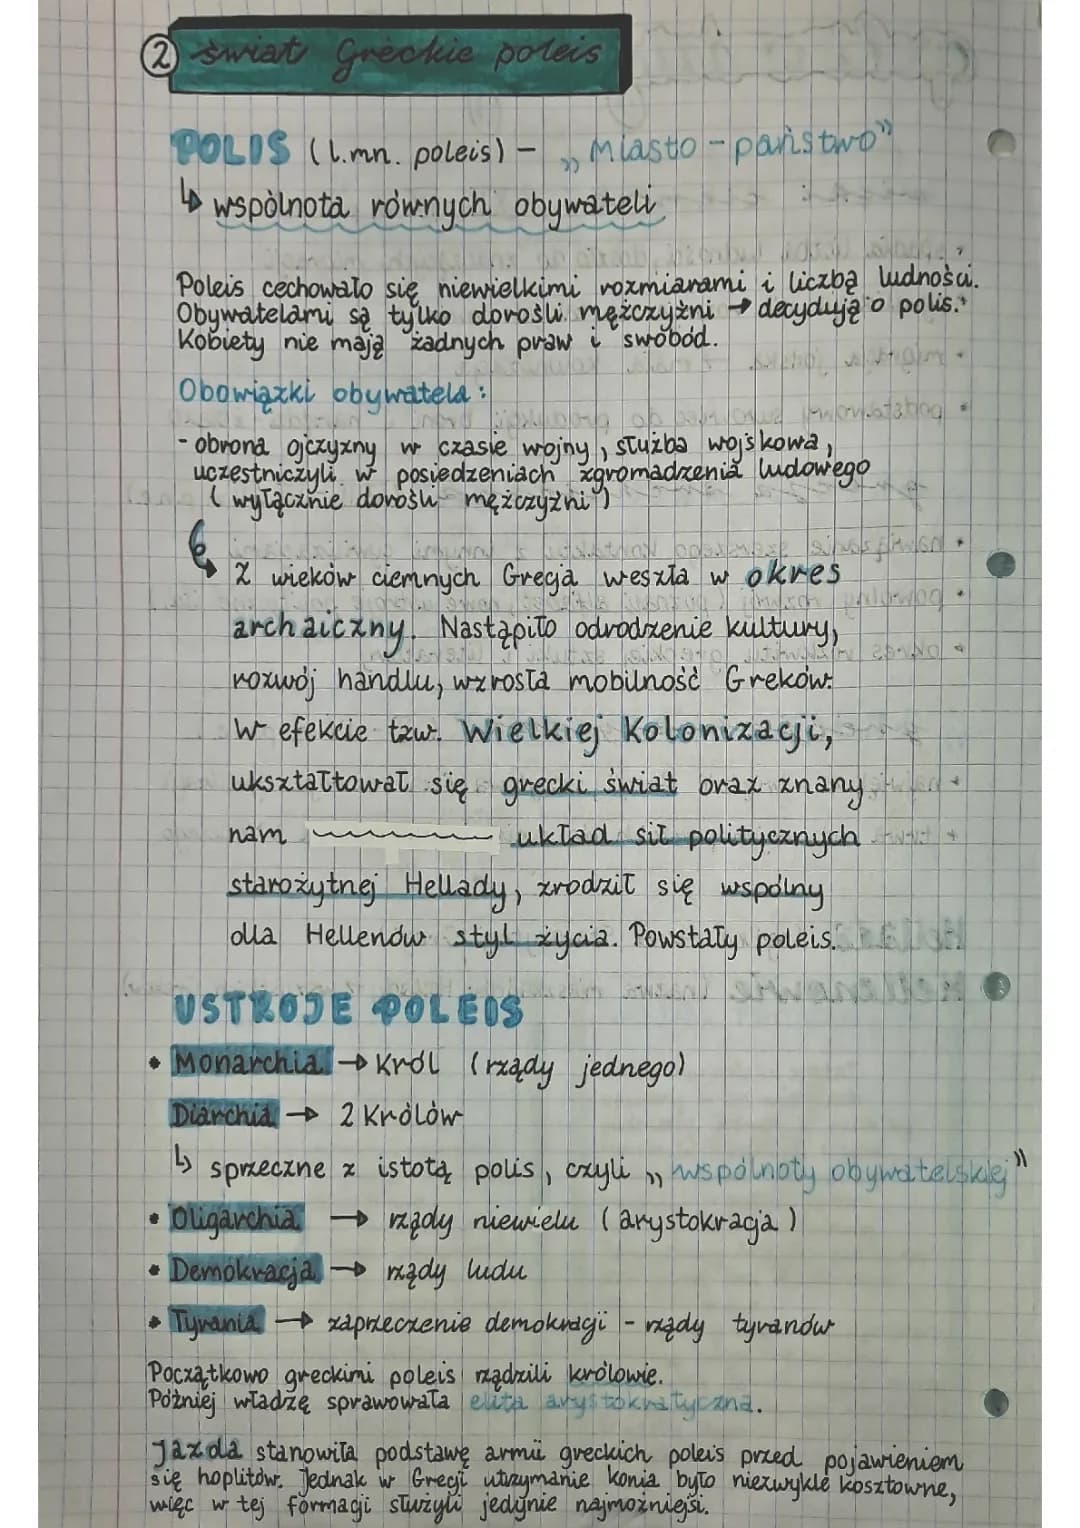 2 świat Greckie poleis
POLIS (l.mn. poleis) - „Miasto-państwo"
↳ wspólnota równych obywateli
Poleis cechowało się niewielkimi rozmiarami i liczbą ludności.
Obywatelami są tylko dorośli mężczyźni → decydują o polis.
Kobiety nie mają żadnych praw i swobód.
Obowiązki obywatela:
- obrona ojczyzny w czasie wojny, służba wojskowa,
uczestniczyli w posiedzeniach zgromadzenia ludowego
(wyłącznie dorośli mężczyźni)
Z wieków ciemnych Grecja weszła w okres
archaiczny. Nastąpiło odrodzenie kultury,
rozwój handlu, wzrosła mobilność Greków.
W efekcie tzw. Wielkiej Kolonizacji,
ukształtował się grecki świat oraz znany
nam układ sił politycznych
starożytnej Hellady, zrodził się wspólny
dla Hellenów styl życia. Powstały poleis.
USTROJE POLEIS
• Monarchia → Król (rządy jednego)
Diarchia → 2 Królów
↳ sprzeczne z istotą polis, czyli „wspólnoty obywatelskiej"
• Oligarchia → rządy niewielu (arystokracja)
• Demokracja → rządy ludu
• Tyrania → zaprzeczenie demokracji - rządy tyranów
Początkowo greckimi poleis rządzili królowie.
Później władzę sprawowała elita arystokratyczna.
Jazda stanowiła podstawę armii greckich poleis przed pojawieniem
się hoplitów. Jednak w Grecji utrzymanie konia było niezwykle kosztowne,
więc w tej formacji służyli jedynie najmożniejsi.